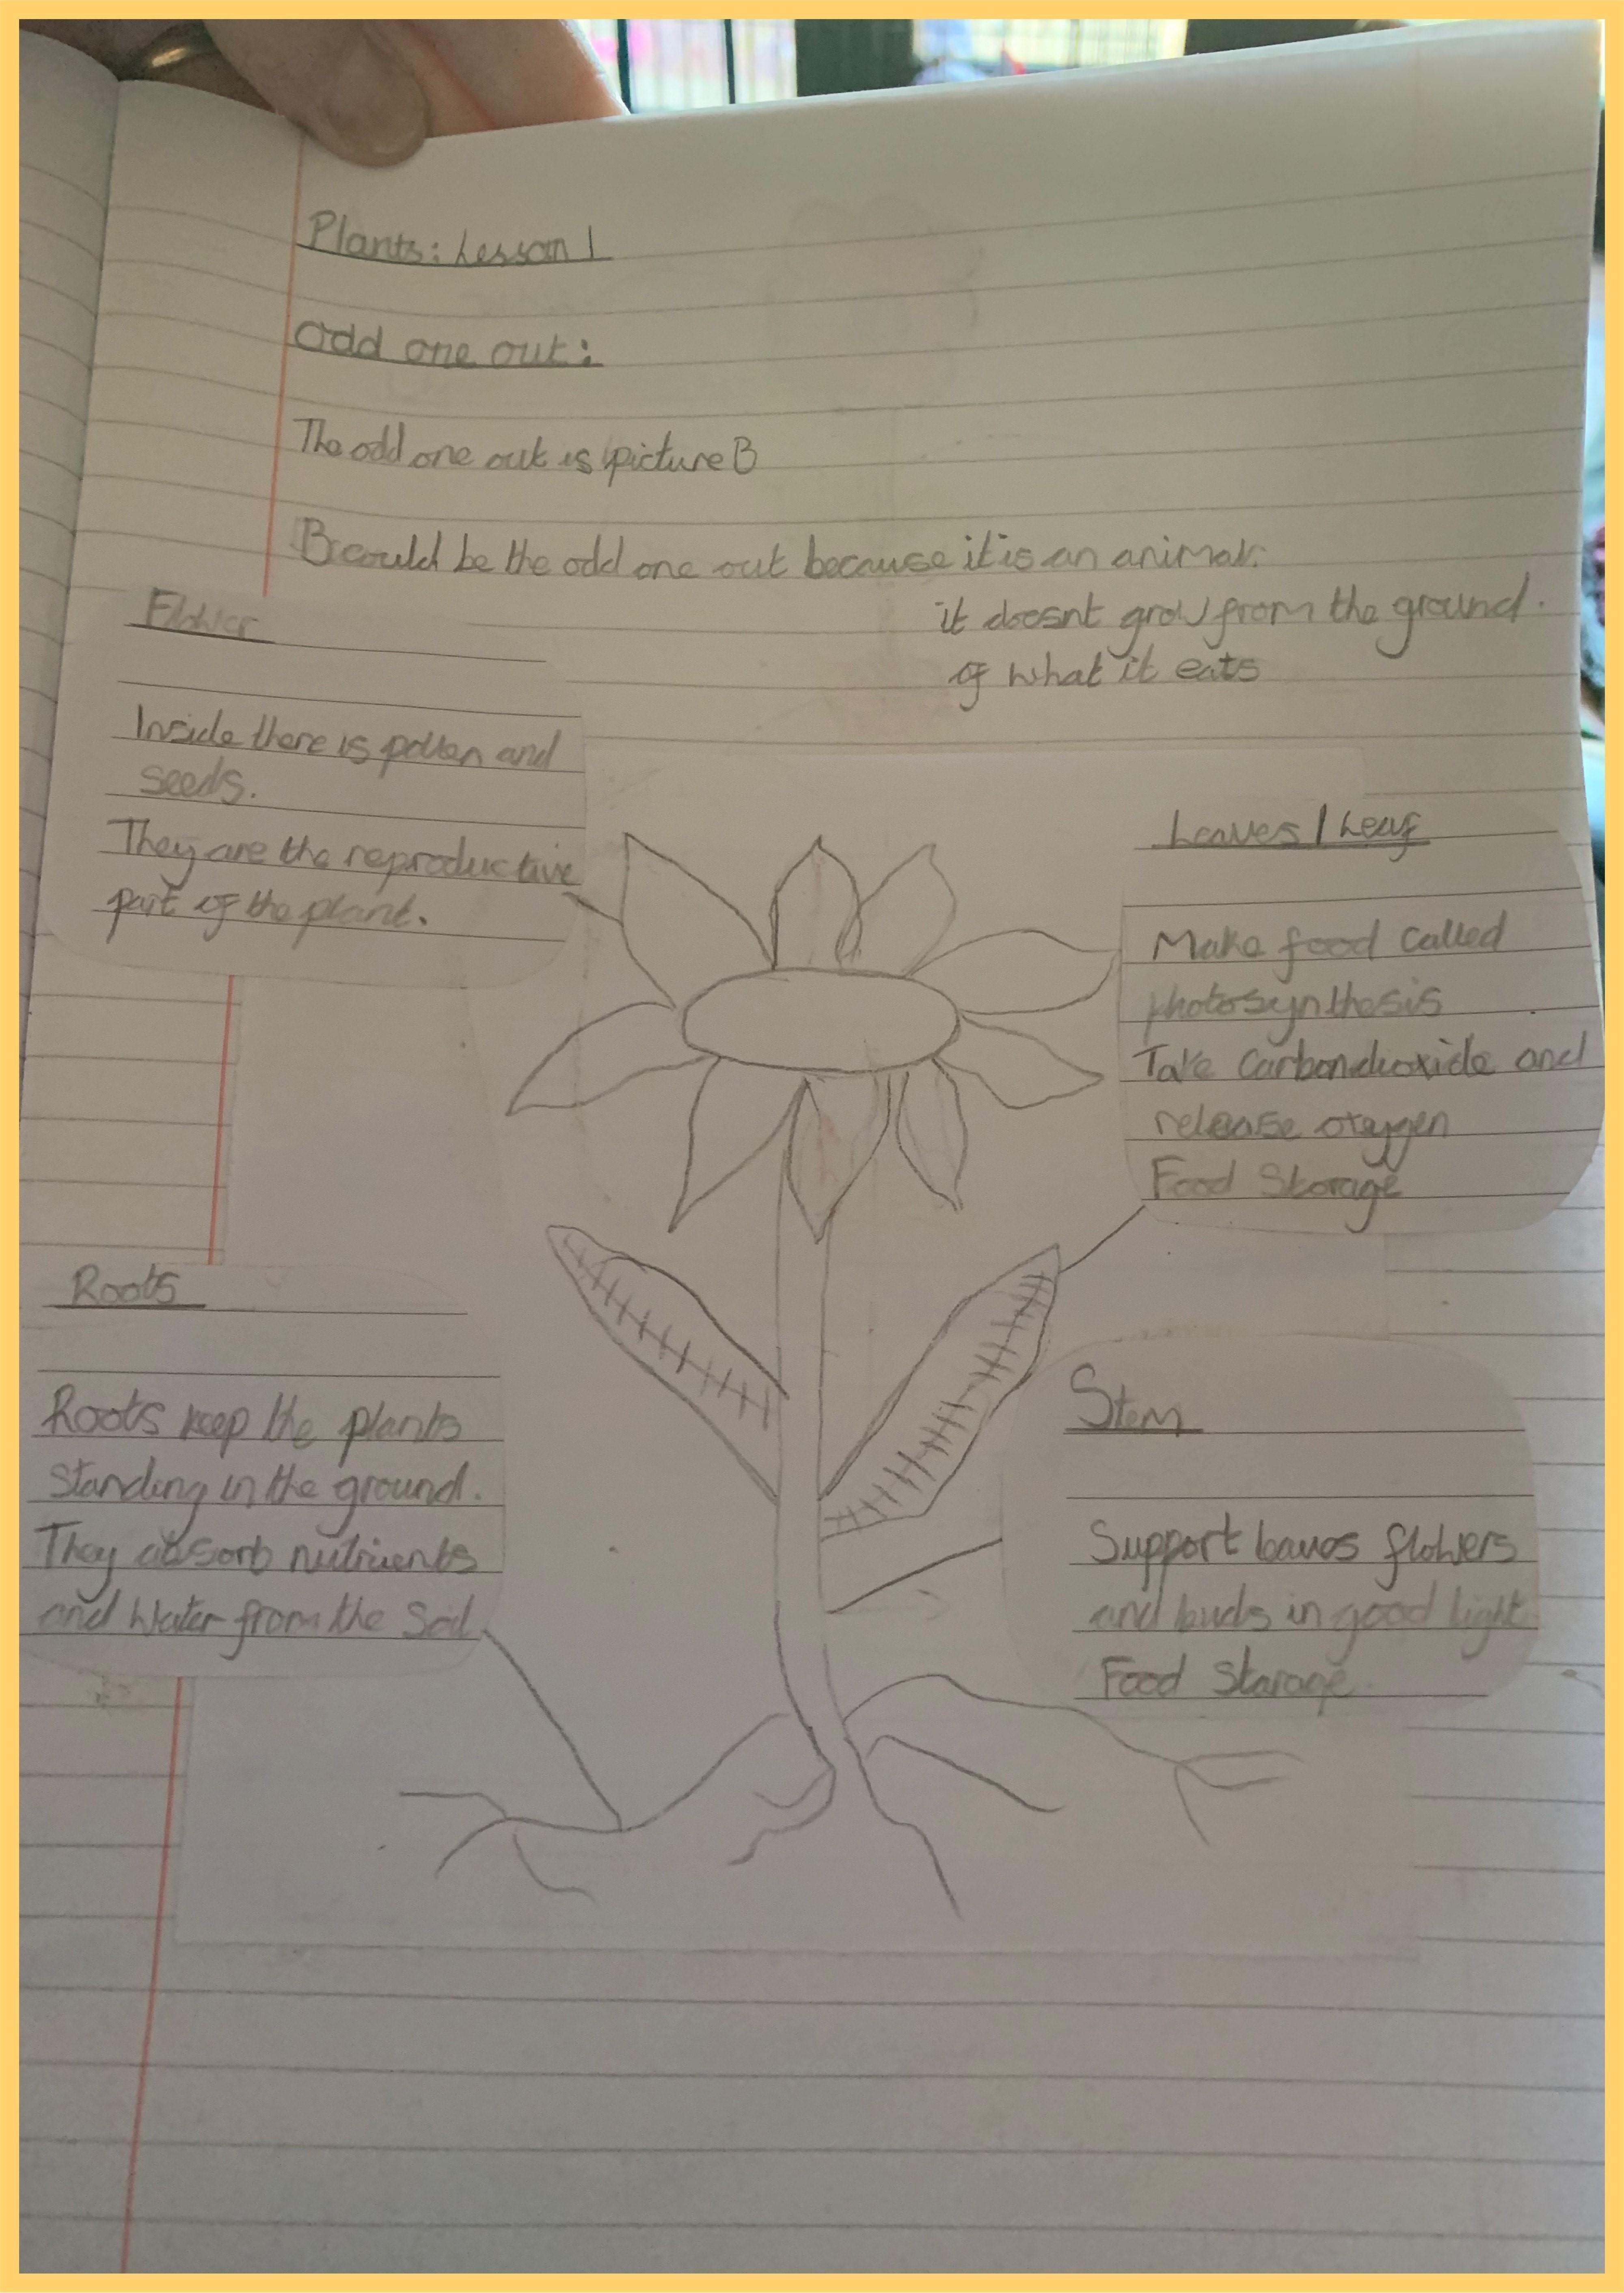 Plants: Lesson 1
Odd one out:
The odd one out is picture B
B could be the odd one out because it is an animal.
it doesnt grow from the ground.
of what it eats
Flower
Inside there is pollen and
seeds.
They are the reproductive
part of the plant.
Leaves / Leaf
Make food called
photosynthesis
Take Carbondioxide and
release oxygen
Food Storage
Roots
Roots keep the plants
standing in the ground.
They absorb nutrients
and Water from the Soil
Stem
Support flowers
and buds in good light
Food Storage